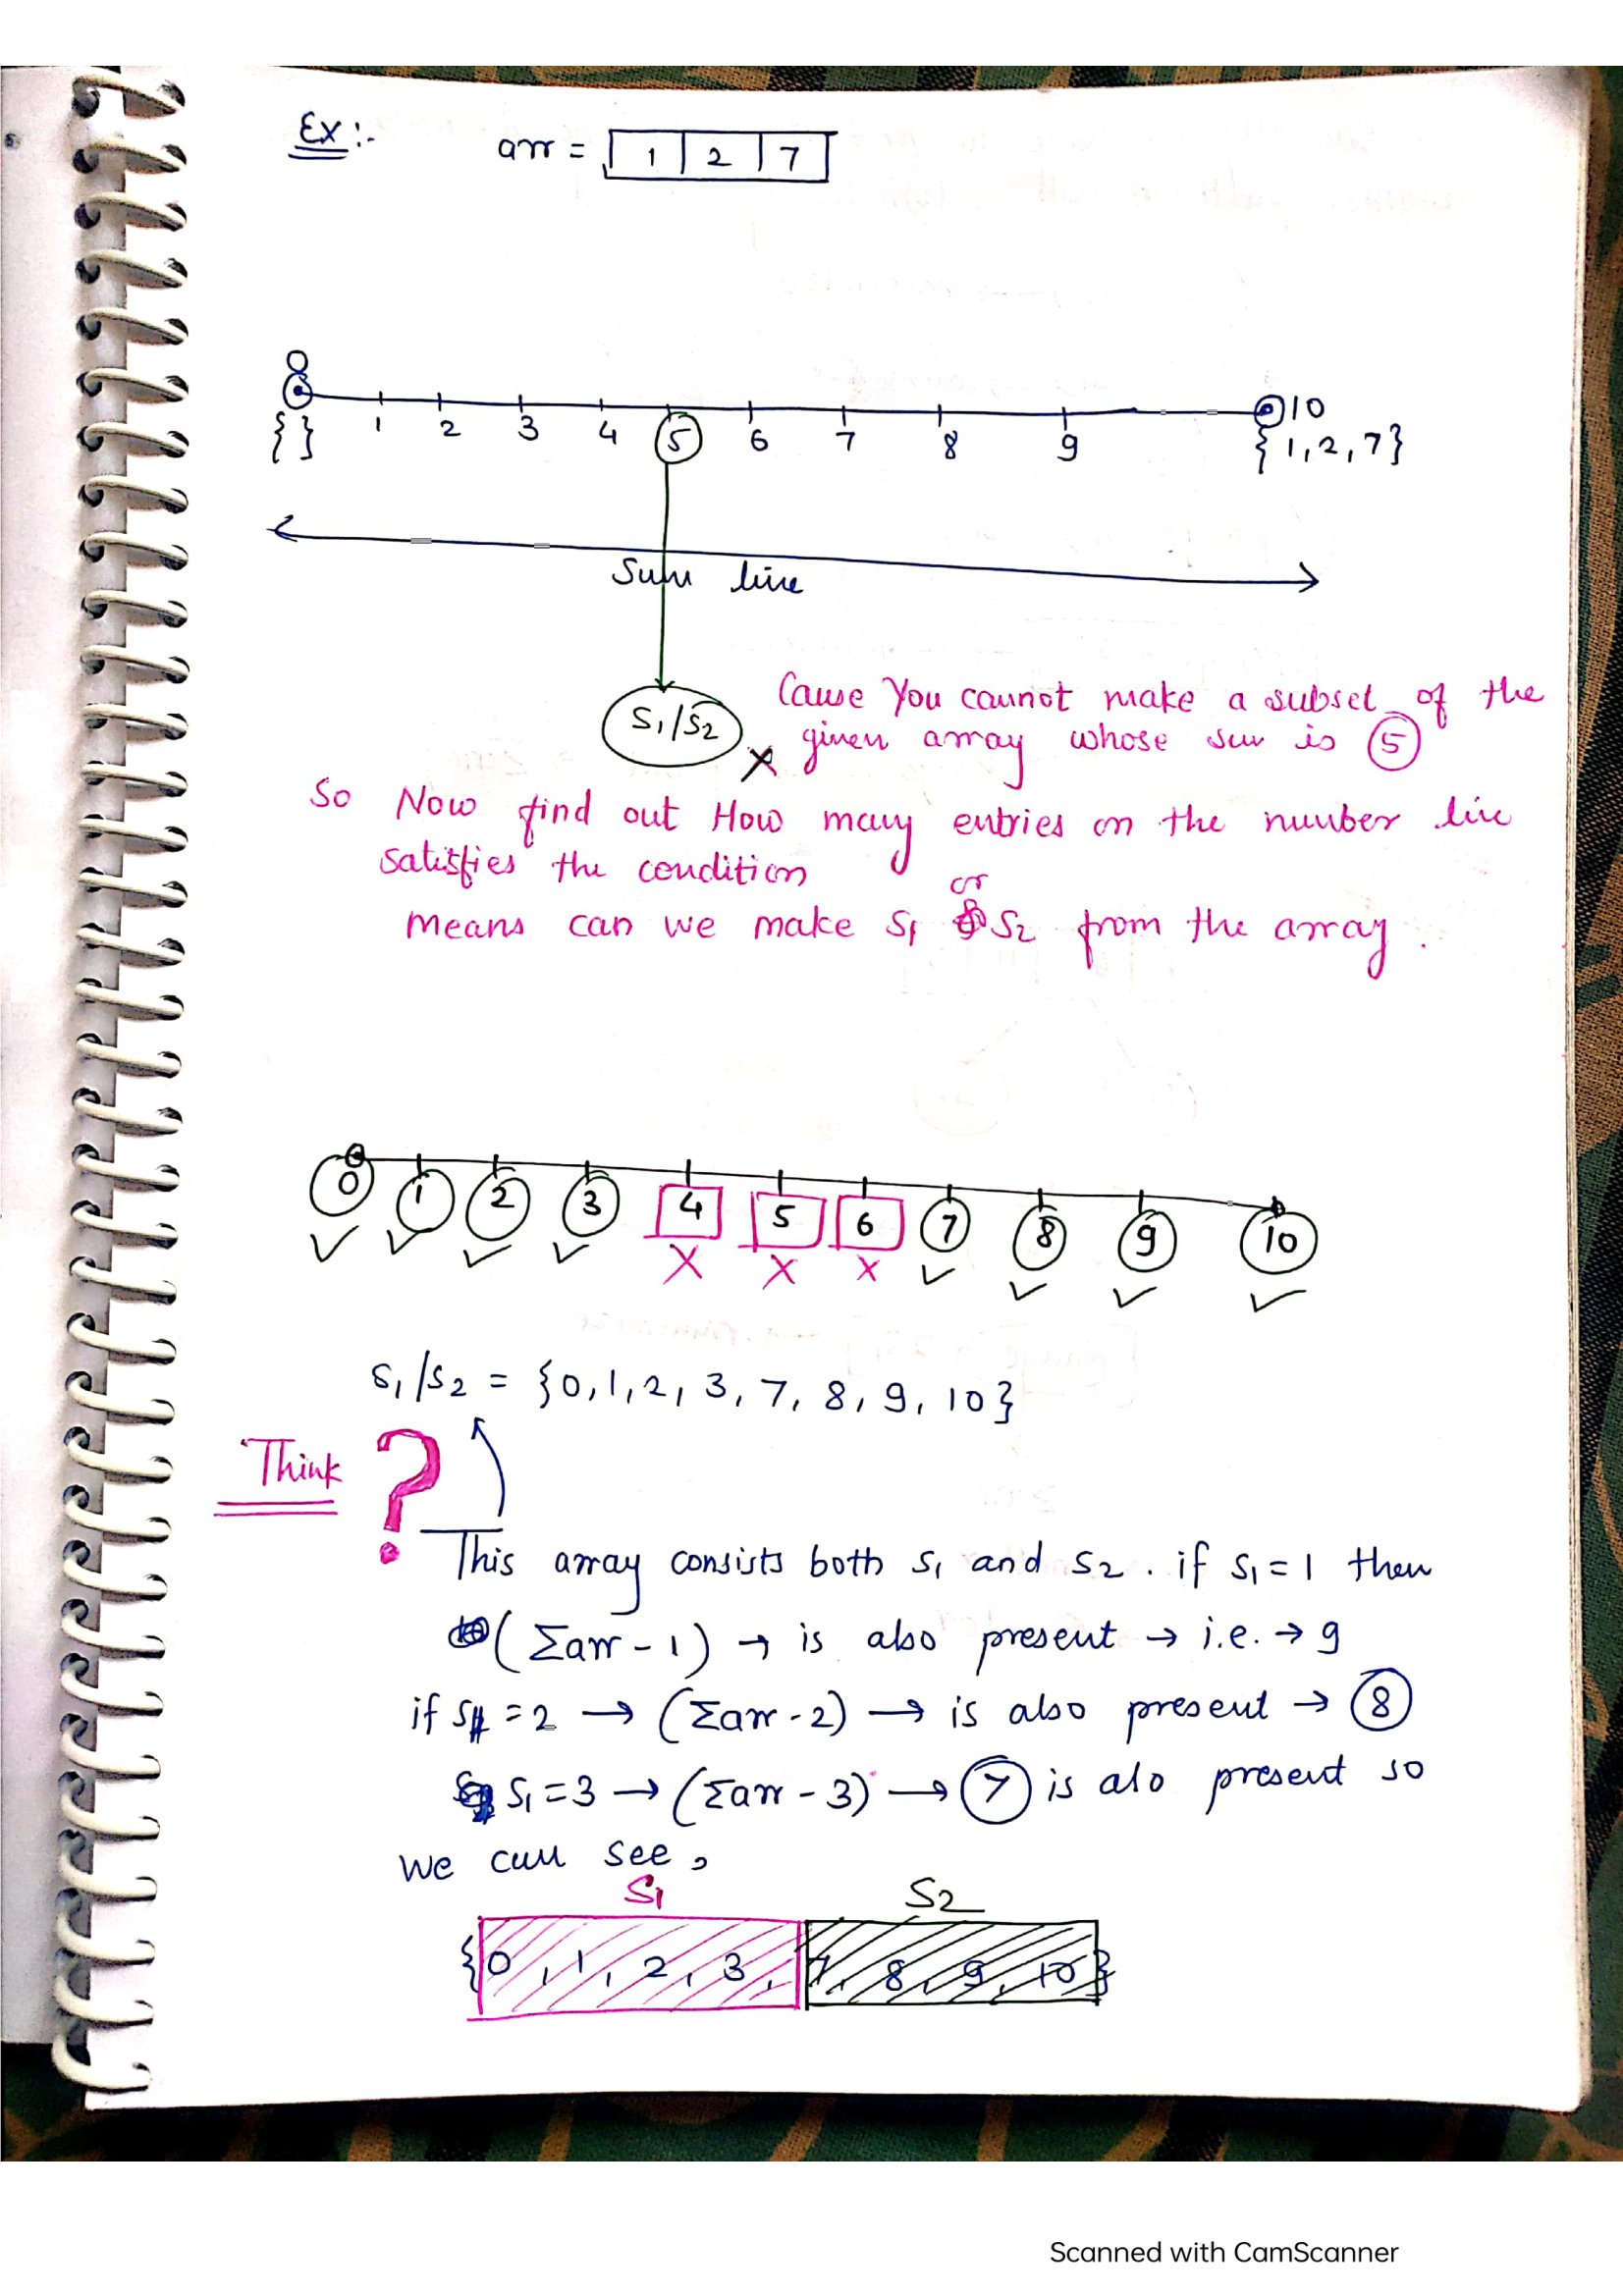 Ex :-
arr = 1 2 7
0 10
{ } 1 2 3 4 5 6 7 8 9 { 1, 2, 7 }
Sum line
S1/S2 X
Cause You cannot make a subset of the
given array whose sum is 5
So Now find out How many entries on the number line
satisfies the condition
or
means can we make S1 S2 from the array .
0 1 2 3 4 5 6 7 8 9 10
✓ ✓ ✓ ✓ X X X ✓ ✓ ✓ ✓
S1/S2 = {0, 1, 2, 3, 7, 8, 9, 10}
Think ?
This array consists both S1 and S2 . if S1 = 1 then
(Σarr - 1) → is also present → i.e. → 9
if S1 = 2 → (Σarr - 2) → is also present → 8
S1 = 3 → (Σarr - 3) → 7 is alo present so
we can see,
S1 S2
{0, 1, 2, 3, 7, 8, 9, 10}
Scanned with CamScanner